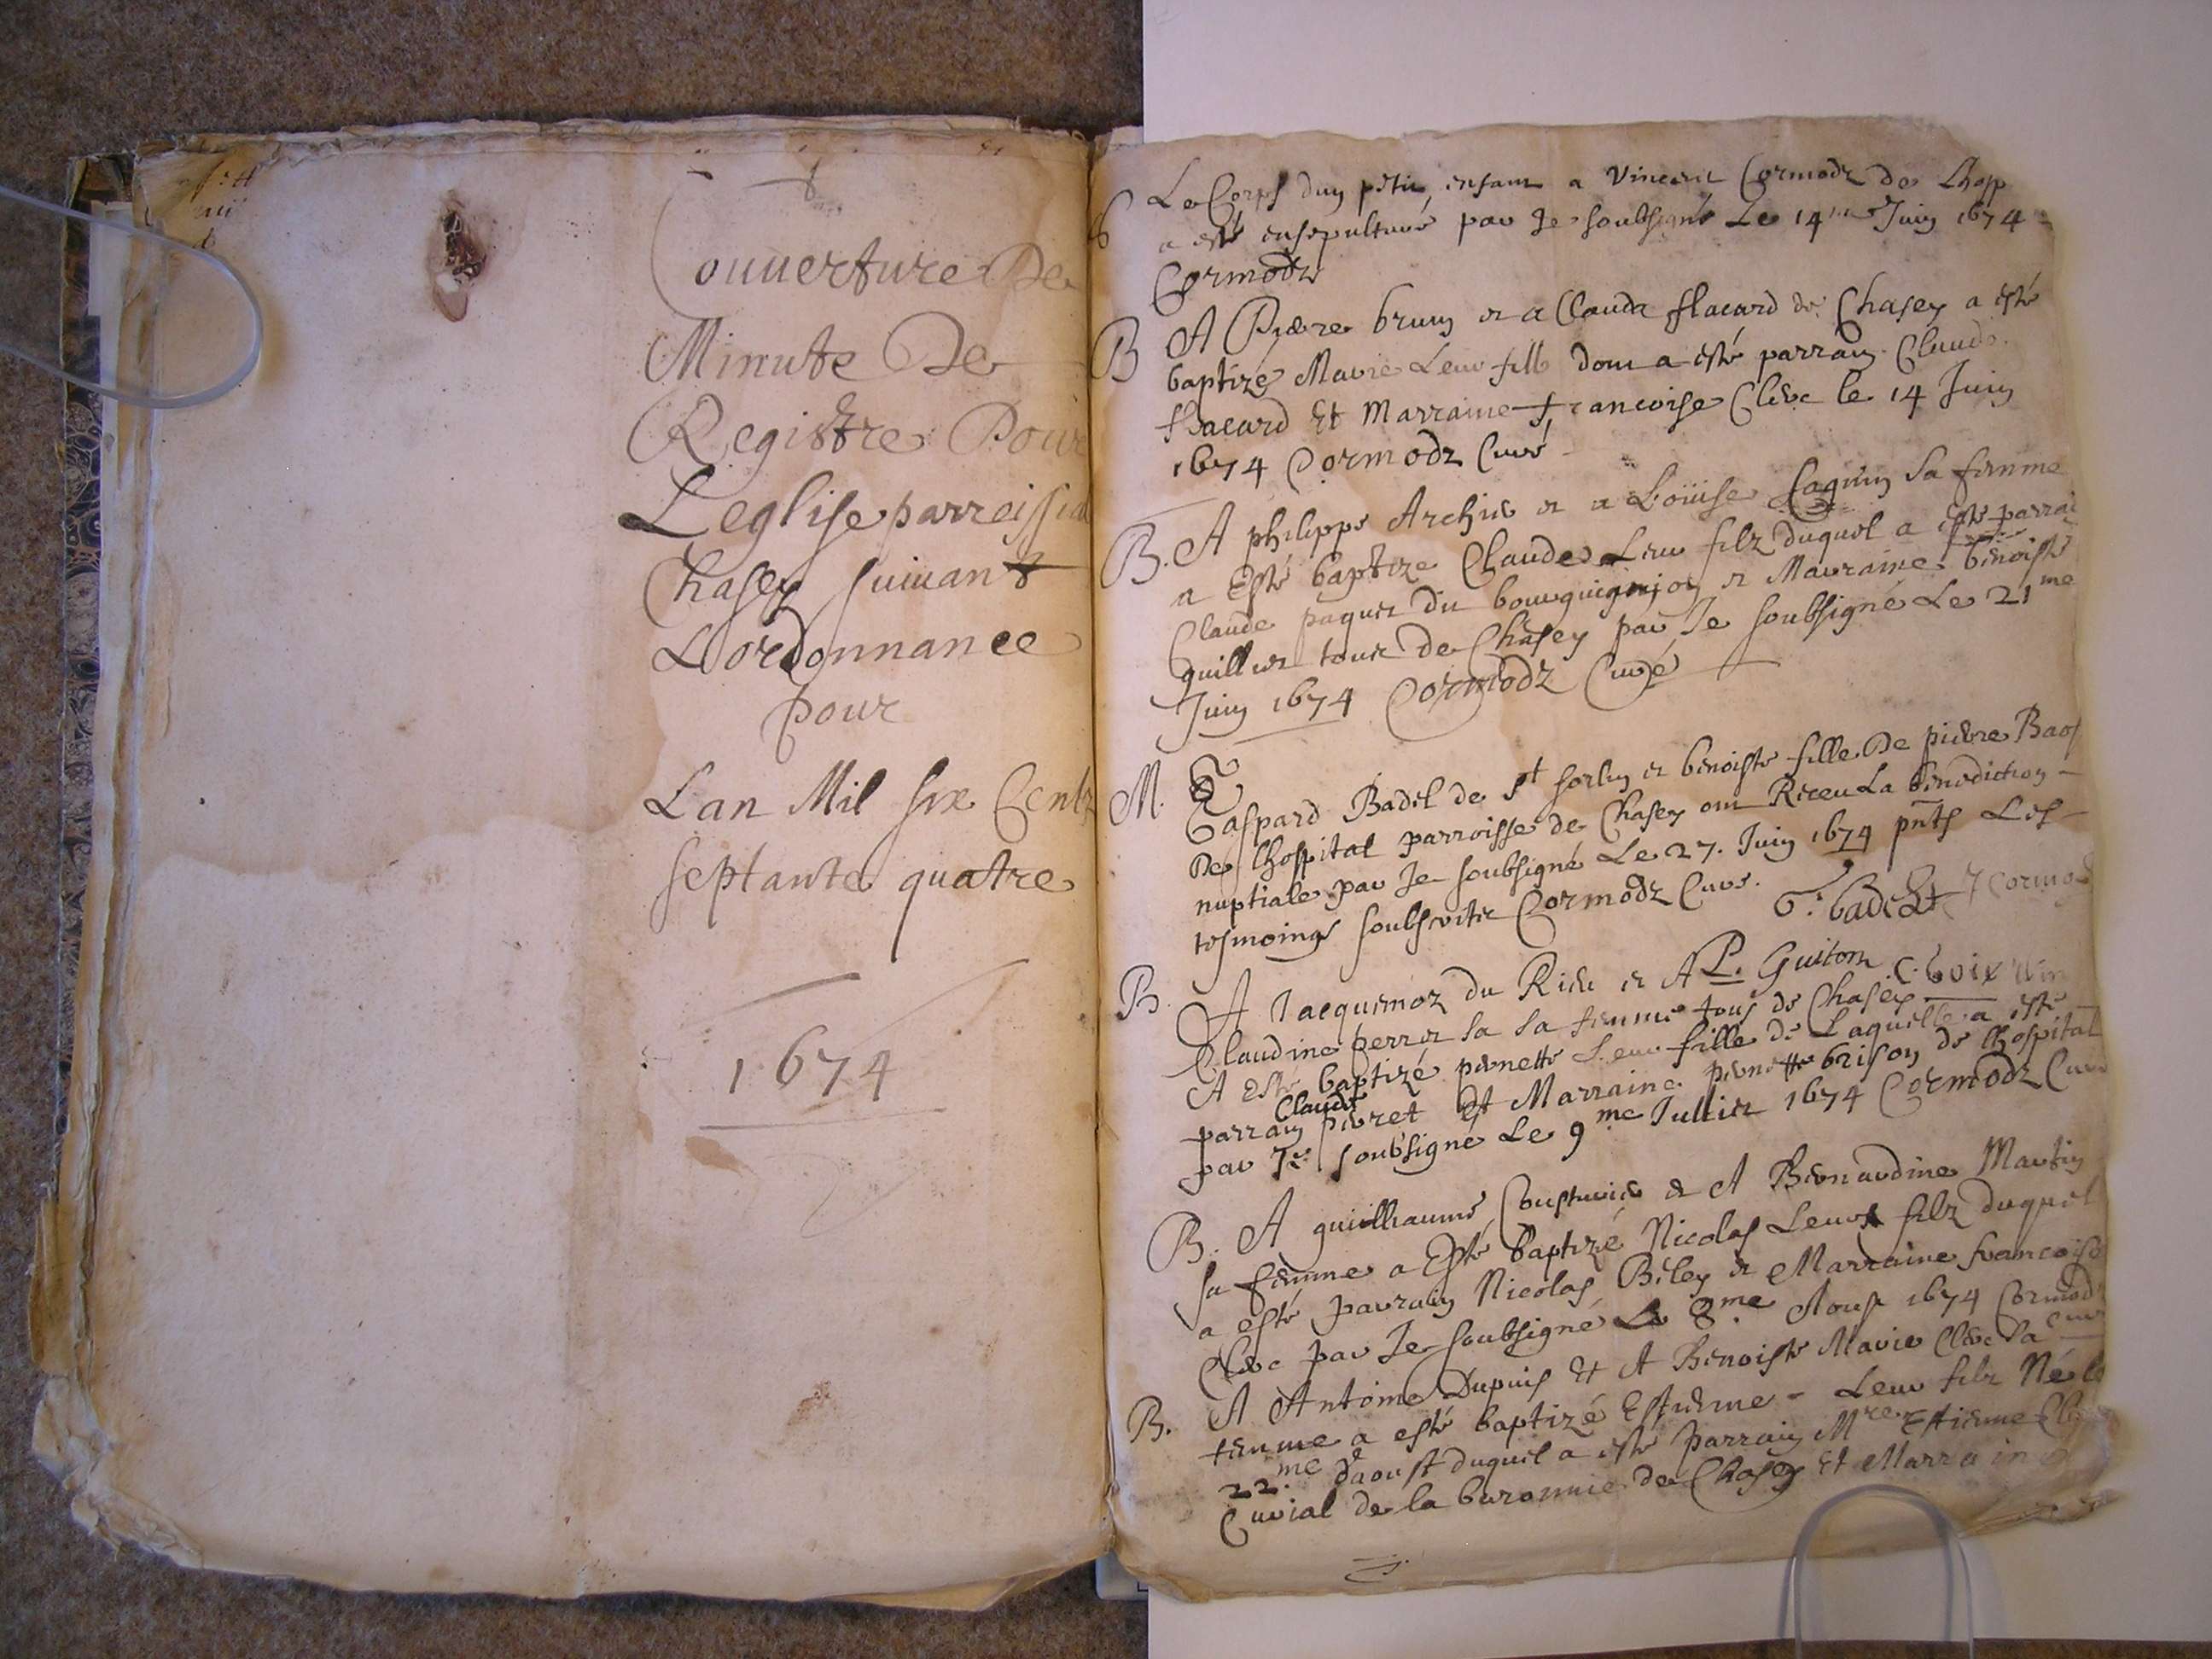 Couuerture De
Minute De
Registre Pour
Leglise parroissial
Chasey suiuant
Lordonnance
pour
Lan Mil six Centz
septante quatre
1674
Le Corps dun petit enfant a Vincent Cormodz de Lhosp
a esté ensepulturé par Je soubsigné Le 14me Juin 1674
Cormodz
B A Pierre brun et a Clauda flacard de Chasey a esté
baptizé Marie Leur fille dont a esté parrain Claude
flacard Et Marraine francoise Clerc le 14 Juin
1674 Cormodz Curé
B. A philippe Archier et a Loüise sa femme
a Esté baptize Claude Leur filz duquel a esté parrai
Claude paquet du et Marraine benoiste
tous de Chasey par Je soubsigné Le 21me
Juin 1674 Cormodz Curé
M. Gaspard Badel de st sorlin et benoiste fille De pierre
De lhospital parroisse de Chasey ont Receu La benediction
nuptiale par Je soubsigné Le 27. Juin 1674 pnts Les
tesmoings soubscritz Cormodz Cure. G. badel
B. A Jacquemoz du Rieu et A P. Guitton
Claudine perret sa femme tous de Chasey
A Esté baptizé pernette Leur fille de Laquelle a esté
Claude
parrain pierret Et Marraine pernette brison de lhospital
par Je soubsigné Le 9me Jullet 1674 Cormodz Curé
B. A guilliaume Cousturier et A Bernardine Martin
sa femme a Esté Baptizé Nicolas Leur filz duquel
a esté parrain Nicolas Biley et Marraine francoise
Clerc par Je soubsigné Le 8me Aoust 1674 Cormodz
Curé
B. A Antoine Dupuis Et A Benoiste Marie Clerc sa
femme a esté baptizé Estienne Leur filz Né le
22me daoust duquel a esté Parrain Mre Estienne
Curial de la baronnie de Chasey Et Marraine